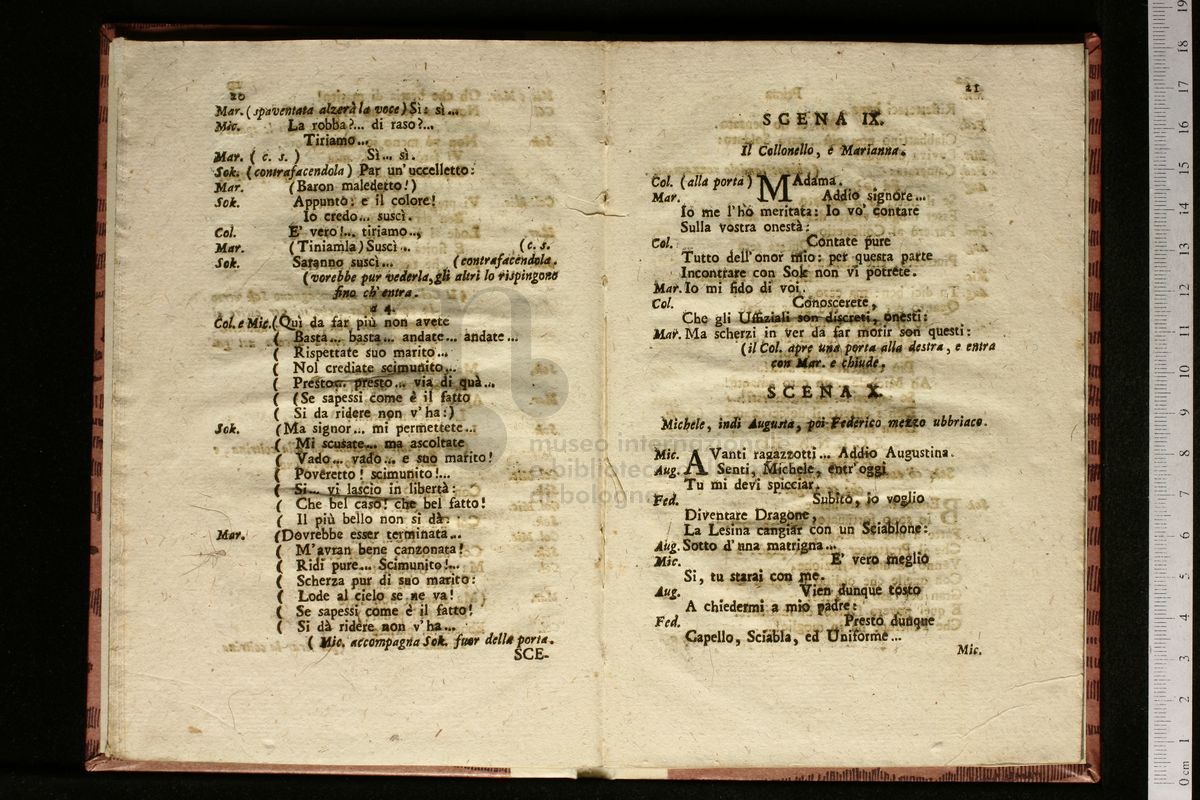 20
Mar. (spaventata alzerà la voce) Sì: sì...
Mic. La robba?... di raso?...
Tiriamo...
Mar. ( c. s. ) Sì... sì.
Sok. (contrafacendola) Par un' uccelletto:
Mar. (Baron maledetto!)
Sok. Appunto: e il colore!
Io credo... suscì.
Col. E' vero!... tiriamo...
Mar. (Tiniamla) Suscì... (c. s.
Sok. Saranno suscì... (contrafacendola.
(vorebbe pur vederla, gli altri lo rispingono
fino ch'entra.
a 4.
Col. e Mic. (Quì da far più non avete
( Basta... basta... andate... andate...
( Rispettate suo marito...
( Nol crediate scimunito...
( Presto... presto... via di quà...
( (Se sapessi come è il fatto
( Si da ridere non v'ha:)
Sok. (Ma signor... mi permettete...
( Mi scusate... ma ascoltate
( Vado... vado... e suo marito!
( Poveretto! scimunito!...
( Si... vi lascio in libertà:
( Che bel caso! che bel fatto!
( Il più bello non si dà:
Mar. (Dovrebbe esser terminata...
( M'avran bene canzonata!
( Ridi pure... Scimunito!...
( Scherza pur di suo marito:
( Lode al cielo se ne va!
( Se sapessi come è il fatto!
( Si dà ridere non v'ha...
( Mic. accompagna Sok. fuor della porta.
SCE-
21
SCENA IX.
Il Collonello, e Marianna.
Col. (alla porta) MAdama.
Mar. Addio signore...
Io me l'hò meritata: Io vo' contare
Sulla vostra onestà:
Col. Contate pure
Tutto dell'onor mio: per questa parte
Incontrare con Sok non vi potrete.
Mar. Io mi fido di voi.
Col. Conoscerete,
Che gli Uffiziali son discreti, onesti:
Mar. Ma scherzi in ver da far morir son questi:
(il Col. apre una porta alla destra, e entra
con Mar. e chiude,
SCENA X.
Michele, indi Augusta, poi Federico mezzo ubbriaco.
Mic. AVanti ragazzotti... Addio Augustina.
Aug. Senti, Michele, entr'oggi
Tu mi devi spicciar.
Fed. Subito, io voglio
Diventare Dragone,
La Lesina cangiar con un Sciablone:
Aug. Sotto d'una matrigna...
Mic. E' vero meglio
Si, tu starai con me.
Aug. Vien dunque tosto
A chiedermi a mio padre:
Fed. Presto dunque
Capello, Sciabla, ed Uniforme...
Mic.
museo internazionale
e biblioteca
di bologna